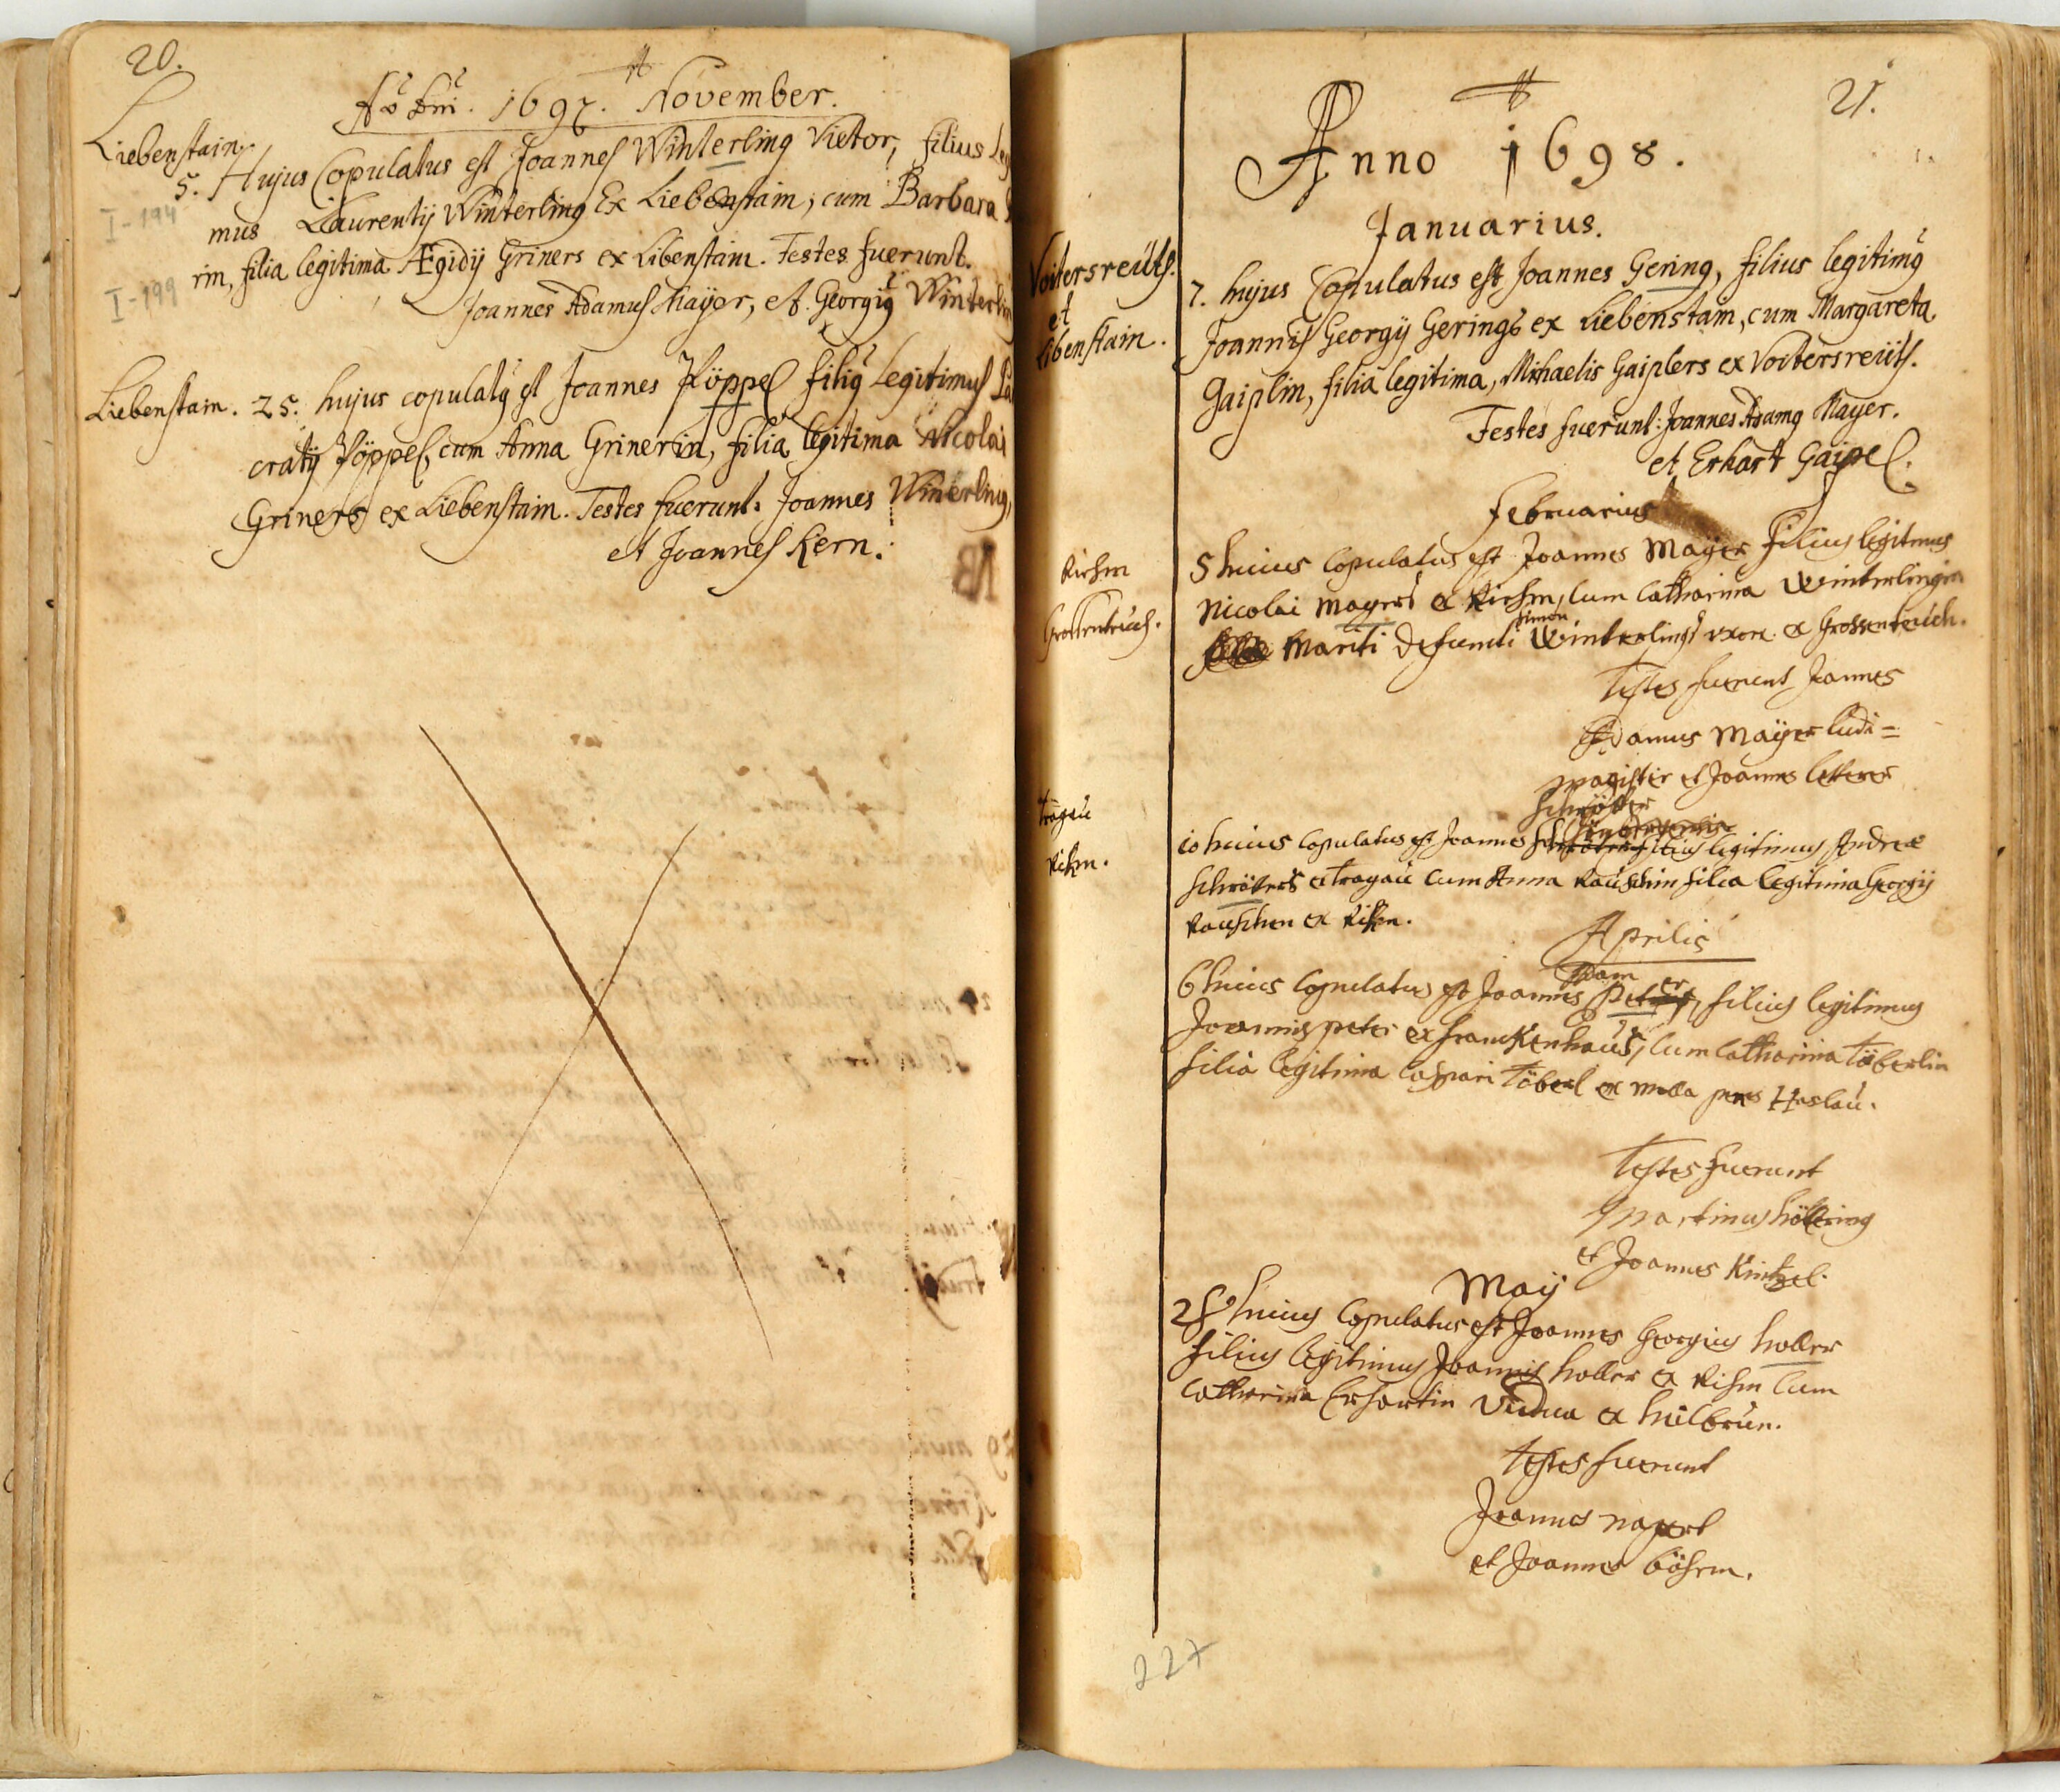 20.
Aõ Dni. 1697. November.
Liebenstain.
5. Hujus Copulatus est Joannes Winterling Vietor, filius Leg
I-194
mus Laurentij Winterling Ex Liebenstain, cum Barbara
rin, filia legitima Ægidij Griners ex Libenstain. Testes fuerunt.
I-199
Joannes Adamus Mayer, et Georgiꝰ Winterlin
Liebenstain. 25. hujus copulatꝰ est Joannes Köppel filiꝰ Legitimus
cratij Köppel, cum Anna Grinerin, filia legitima Nicolai
Griners ex Liebenstain. Testes fuerunt: Joannes Winerling,
et Joannes Kern.
NB
21.
Anno 1698.
Januarius.
Voitersreüth.
et
Libenstain.
7. hujus Copulatus est Joannes Gering, filius legitimꝰ
Joannis Georgij Gerings ex Liebenstain, cum Margareta
Gaiplin, filia legitima, Michaelis Gaiplers ex Voitersreüth.
Testes fuerunt: Joannes Adamꝰ Mayer.
et Erhart Gaipel.
Februarius
Rirhm
Grossenteuch.
5 huius Copulatus est Joannes Mayer filius legitimus
Nicolai Mayers ex Rirhm, Cum Catharina Winterlingin
Simon
Mariti defuncti Winterlings uxore ex Grossenteüch.
Testes fuerunt Joannes
Adamus Mayer ludi=
magister et Joannes
Schrötter
Tragau
Rihm.
10 huius Copulatus est Joannes filius legitimus Andreæ
Schröters ex Tragau Cum Anna Rauschin filia legitima Georgij
Rauschen ex Rihm.
Aprilis
Adam
6 huius Copulatus est Joannes Peter, filius legitimus
Joannis peter ex franckenhaus, Cum Catharina Töberlin
filia legitima Caspari Töberl ex Mola penes Haslau.
Testes fuerunt
Martinus höllering
et Joannes Kintzel.
May
28 huius Copulatus est Joannes Georgius holler
filius legitimus Joannis holler ex Rihm Cum
Catharina Erhartin Vidua ex hilbrun.
Testes fuerunt
Joannes
et Joannes böhm.
227